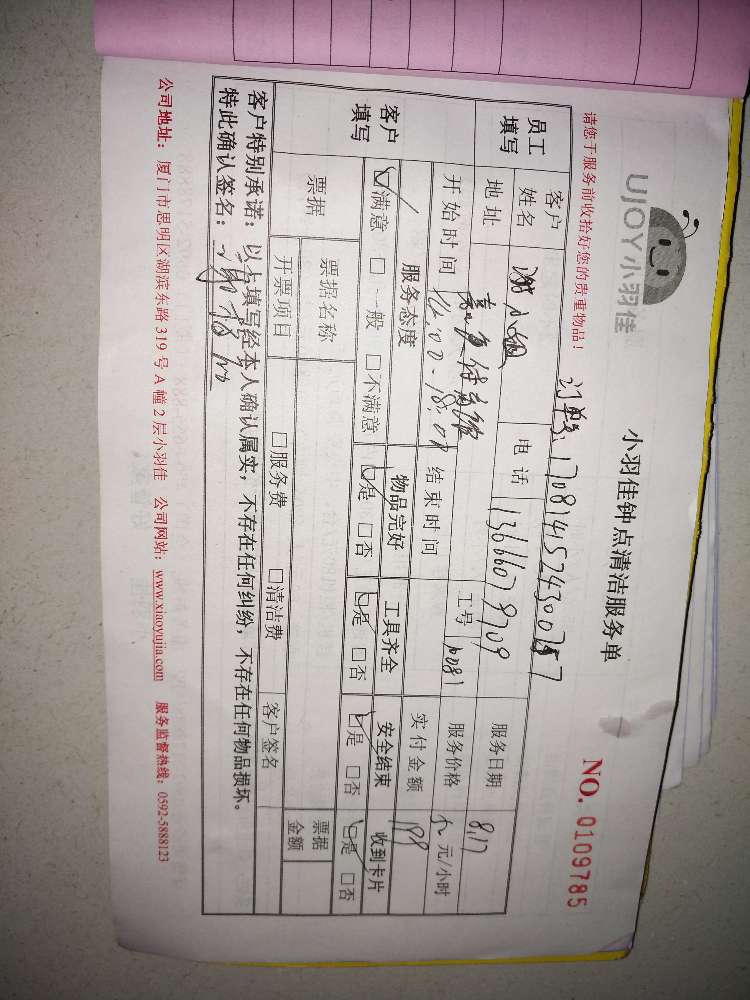 UJOY小羽佳
小羽佳钟点清洁服务单
NO. 0109785
请您于服务前收拾好您的贵重物品！
订单号:
员工填写 客户姓名 小姐 电话 13666078709 服务日期 8.17
地址 工号 10081 服务价格 元/小时
开始时间 结束时间 实付金额 199
客户填写 服务态度 物品完好 工具齐全 安全结束 收到卡片
☑满意 □一般 □不满意 ☑是 □否 ☑是 □否 ☑是 □否 ☑是 □否
票据 票据名称 □服务费 □清洁费 客户签名 票据金额
开票项目
客户特别承诺：以上填写经本人确认属实，不存在任何纠纷，不存在任何物品损坏。
特此确认签名：
公司地址：厦门市思明区湖滨东路 319 号 A 幢 2 层小羽佳 公司网站：www.xiaoyujia.com 服务监督热线：0592-5888123